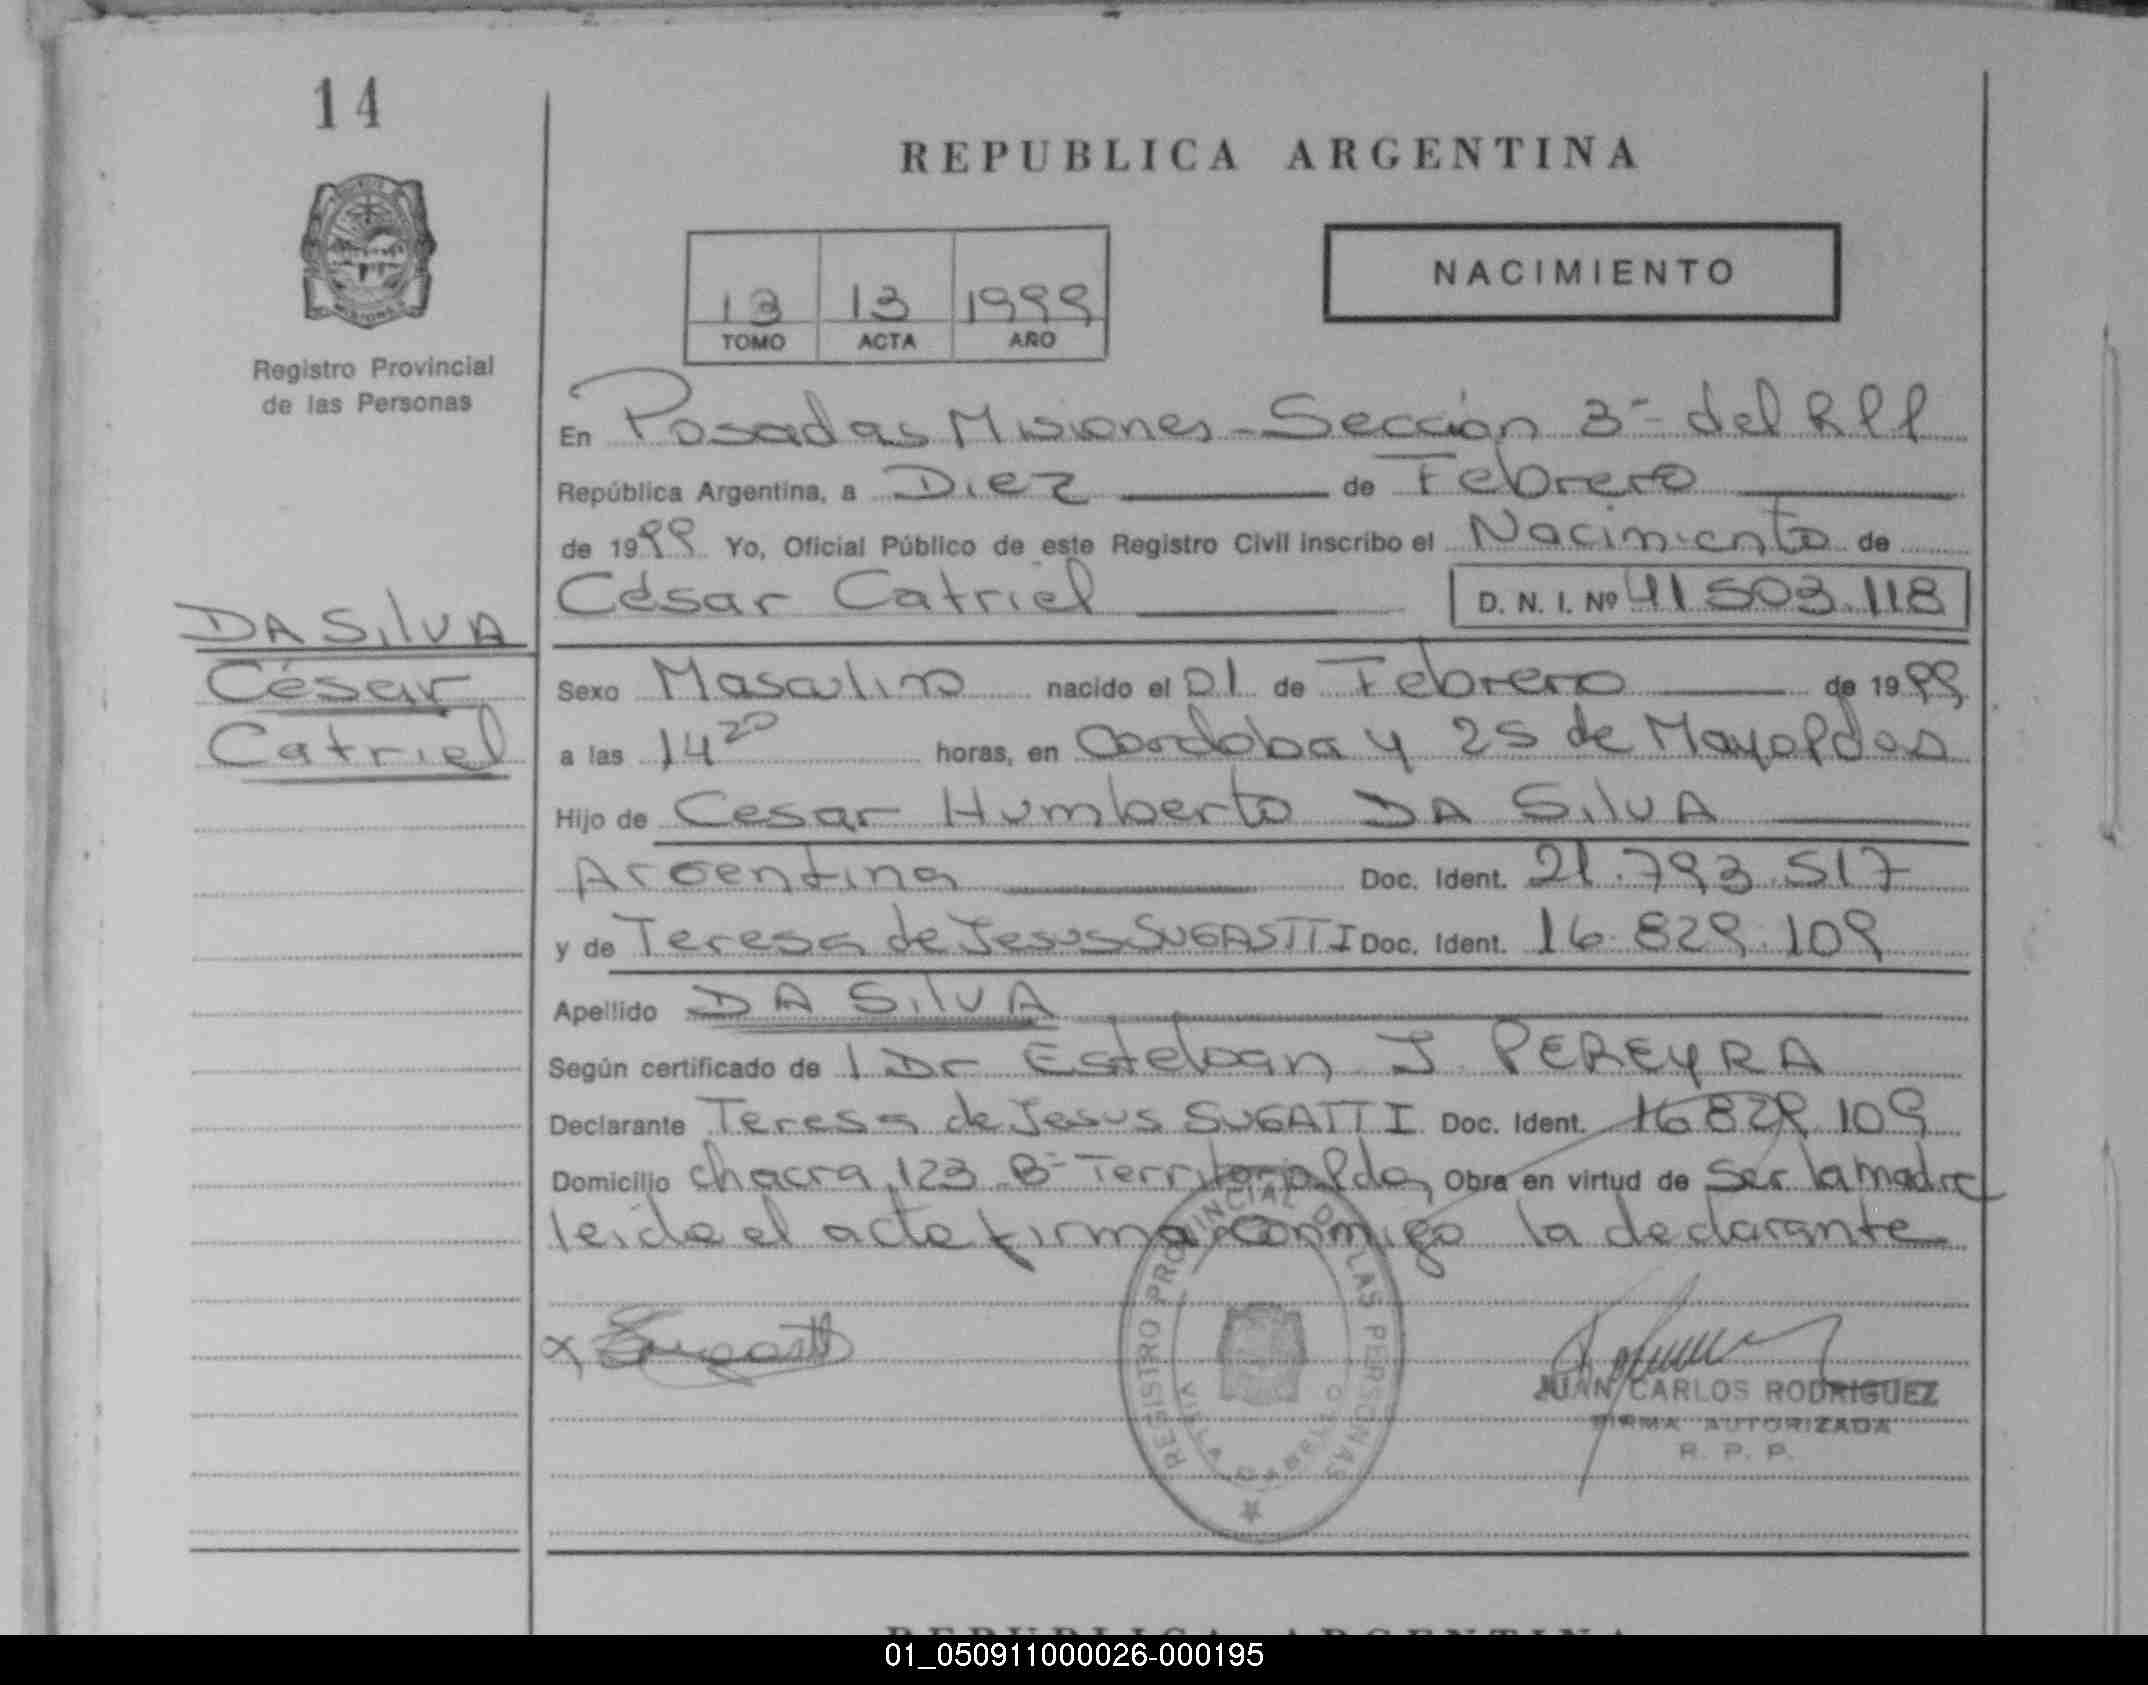 14
REPUBLICA ARGENTINA
Registro Provincial
de las Personas
13 13 1999
TOMO ACTA AÑO
NACIMIENTO
En Posadas Misiones - Sección 3ª del RPP
República Argentina, a Diez de Febrero
de 1999 Yo, Oficial Público de este Registro Civil inscribo el Nacimiento de
César Catriel D. N. I. Nº 41 503.118
DA SilVA
César
Catriel
Sexo Masculino nacido el 01 de Febrero de 1999
a las 14 20 horas, en Cordoba y 25 de Mayo Pdas
Hijo de Cesar Humberto DA SilVA
Argentina Doc. Ident. 21.793.517
y de Teresa de Jesus SUGASTTI Doc. Ident. 16.829.109
Apellido DA SilVA
Según certificado de l Dr Esteban J. PEREYRA
Declarante Teresa de Jesus SUGATTI Doc. Ident. 16829.109
Domicilio chacra 123 Bº Territorial Pdas Obra en virtud de ser la madre
leida el acta firma conmigo la declarante
REGISTRO PROVINCIAL DE LAS PERSONAS
VILLA CABELLO
x Sugastti
JUAN CARLOS RODRIGUEZ
FIRMA AUTORIZADA
R. P. P.
REPUBLICA ARGENTINA
01_050911000026-000195